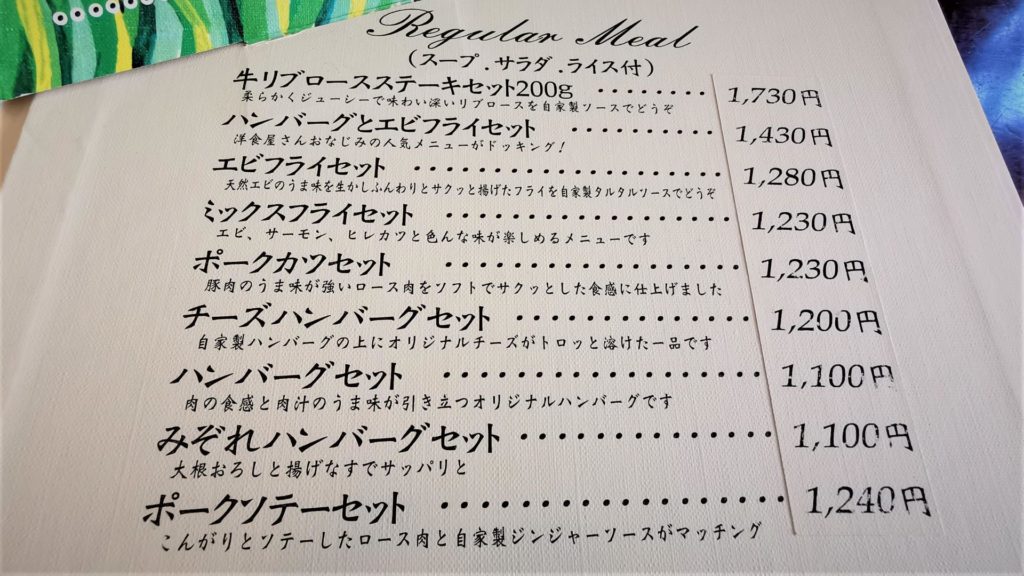 Regular Meal
(スープ.サラダ.ライス付)
牛リブロースステーキセット200g ・・・・・・・・ 1,730円
柔らかくジューシーで味わい深いリブロースを自家製ソースでどうぞ
ハンバーグとエビフライセット ・・・・・・・・・・ 1,430円
洋食屋さんおなじみの人気メニューがドッキング!
エビフライセット ・・・・・・・・・・・・・・・・・・ 1,280円
天然エビのうま味を生かしふんわりとサクッと揚げたフライを自家製タルタルソースでどうぞ
ミックスフライセット ・・・・・・・・・・・・・・・・・ 1,230円
エビ、サーモン、ヒレカツと色んな味が楽しめるメニューです
ポークカツセット ・・・・・・・・・・・・・・・・・ 1,230円
豚肉のうま味が強いロース肉をソフトでサクッとした食感に仕上げました
チーズハンバーグセット ・・・・・・・・・・・・・ 1,200円
自家製ハンバーグの上にオリジナルチーズがトロッと溶けた一品です
ハンバーグセット ・・・・・・・・・・・・・・・・・ 1,100円
肉の食感と肉汁のうま味が引き立つオリジナルハンバーグです
みぞれハンバーグセット ・・・・・・・・・・・・・ 1,100円
大根おろしと揚げなすでサッパリと
ポークソテーセット ・・・・・・・・・・・・・・・・・ 1,240円
こんがりとソテーしたロース肉と自家製ジンジャーソースがマッチング